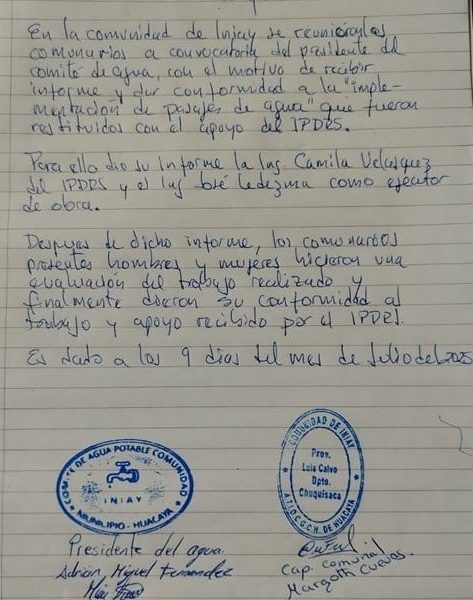 En la comunidad de Iniay se reunieron los
comunarios a convocatoria del presidente del
comité de agua, con el motivo de recibir
informe y dar conformidad a la "imple-
mentación de pasajes de agua" que fueron
restituidos con el apoyo del IPDRS.
Para ello dio su informe la Ing. Camila Velasquez
del IPDRS y el Ing José Ledezma como ejecutor
de obra.
Despues de dicho informe, los comunarios
presentes hombres y mujeres hicieron una
evaluación del trabajo realizado y
finalmente dieron su conformidad al
trabajo y apoyo recibido por el IPDRS.
Es dado a los 9 dias del mes de Julio del 2025
COMITE DE AGUA POTABLE COMUNIDAD
INIAY
MUNICIPIO - HUACAYA
Presidente del agua.
Adrian Miguel Fernandez
COMUNIDAD DE INIAY
Prov.
Luis Calvo
Dpto.
Chuquisaca
A.T.I.O.C.G.CH. DE HUACAYA
Cap. comunal
Margoth Cuevas.